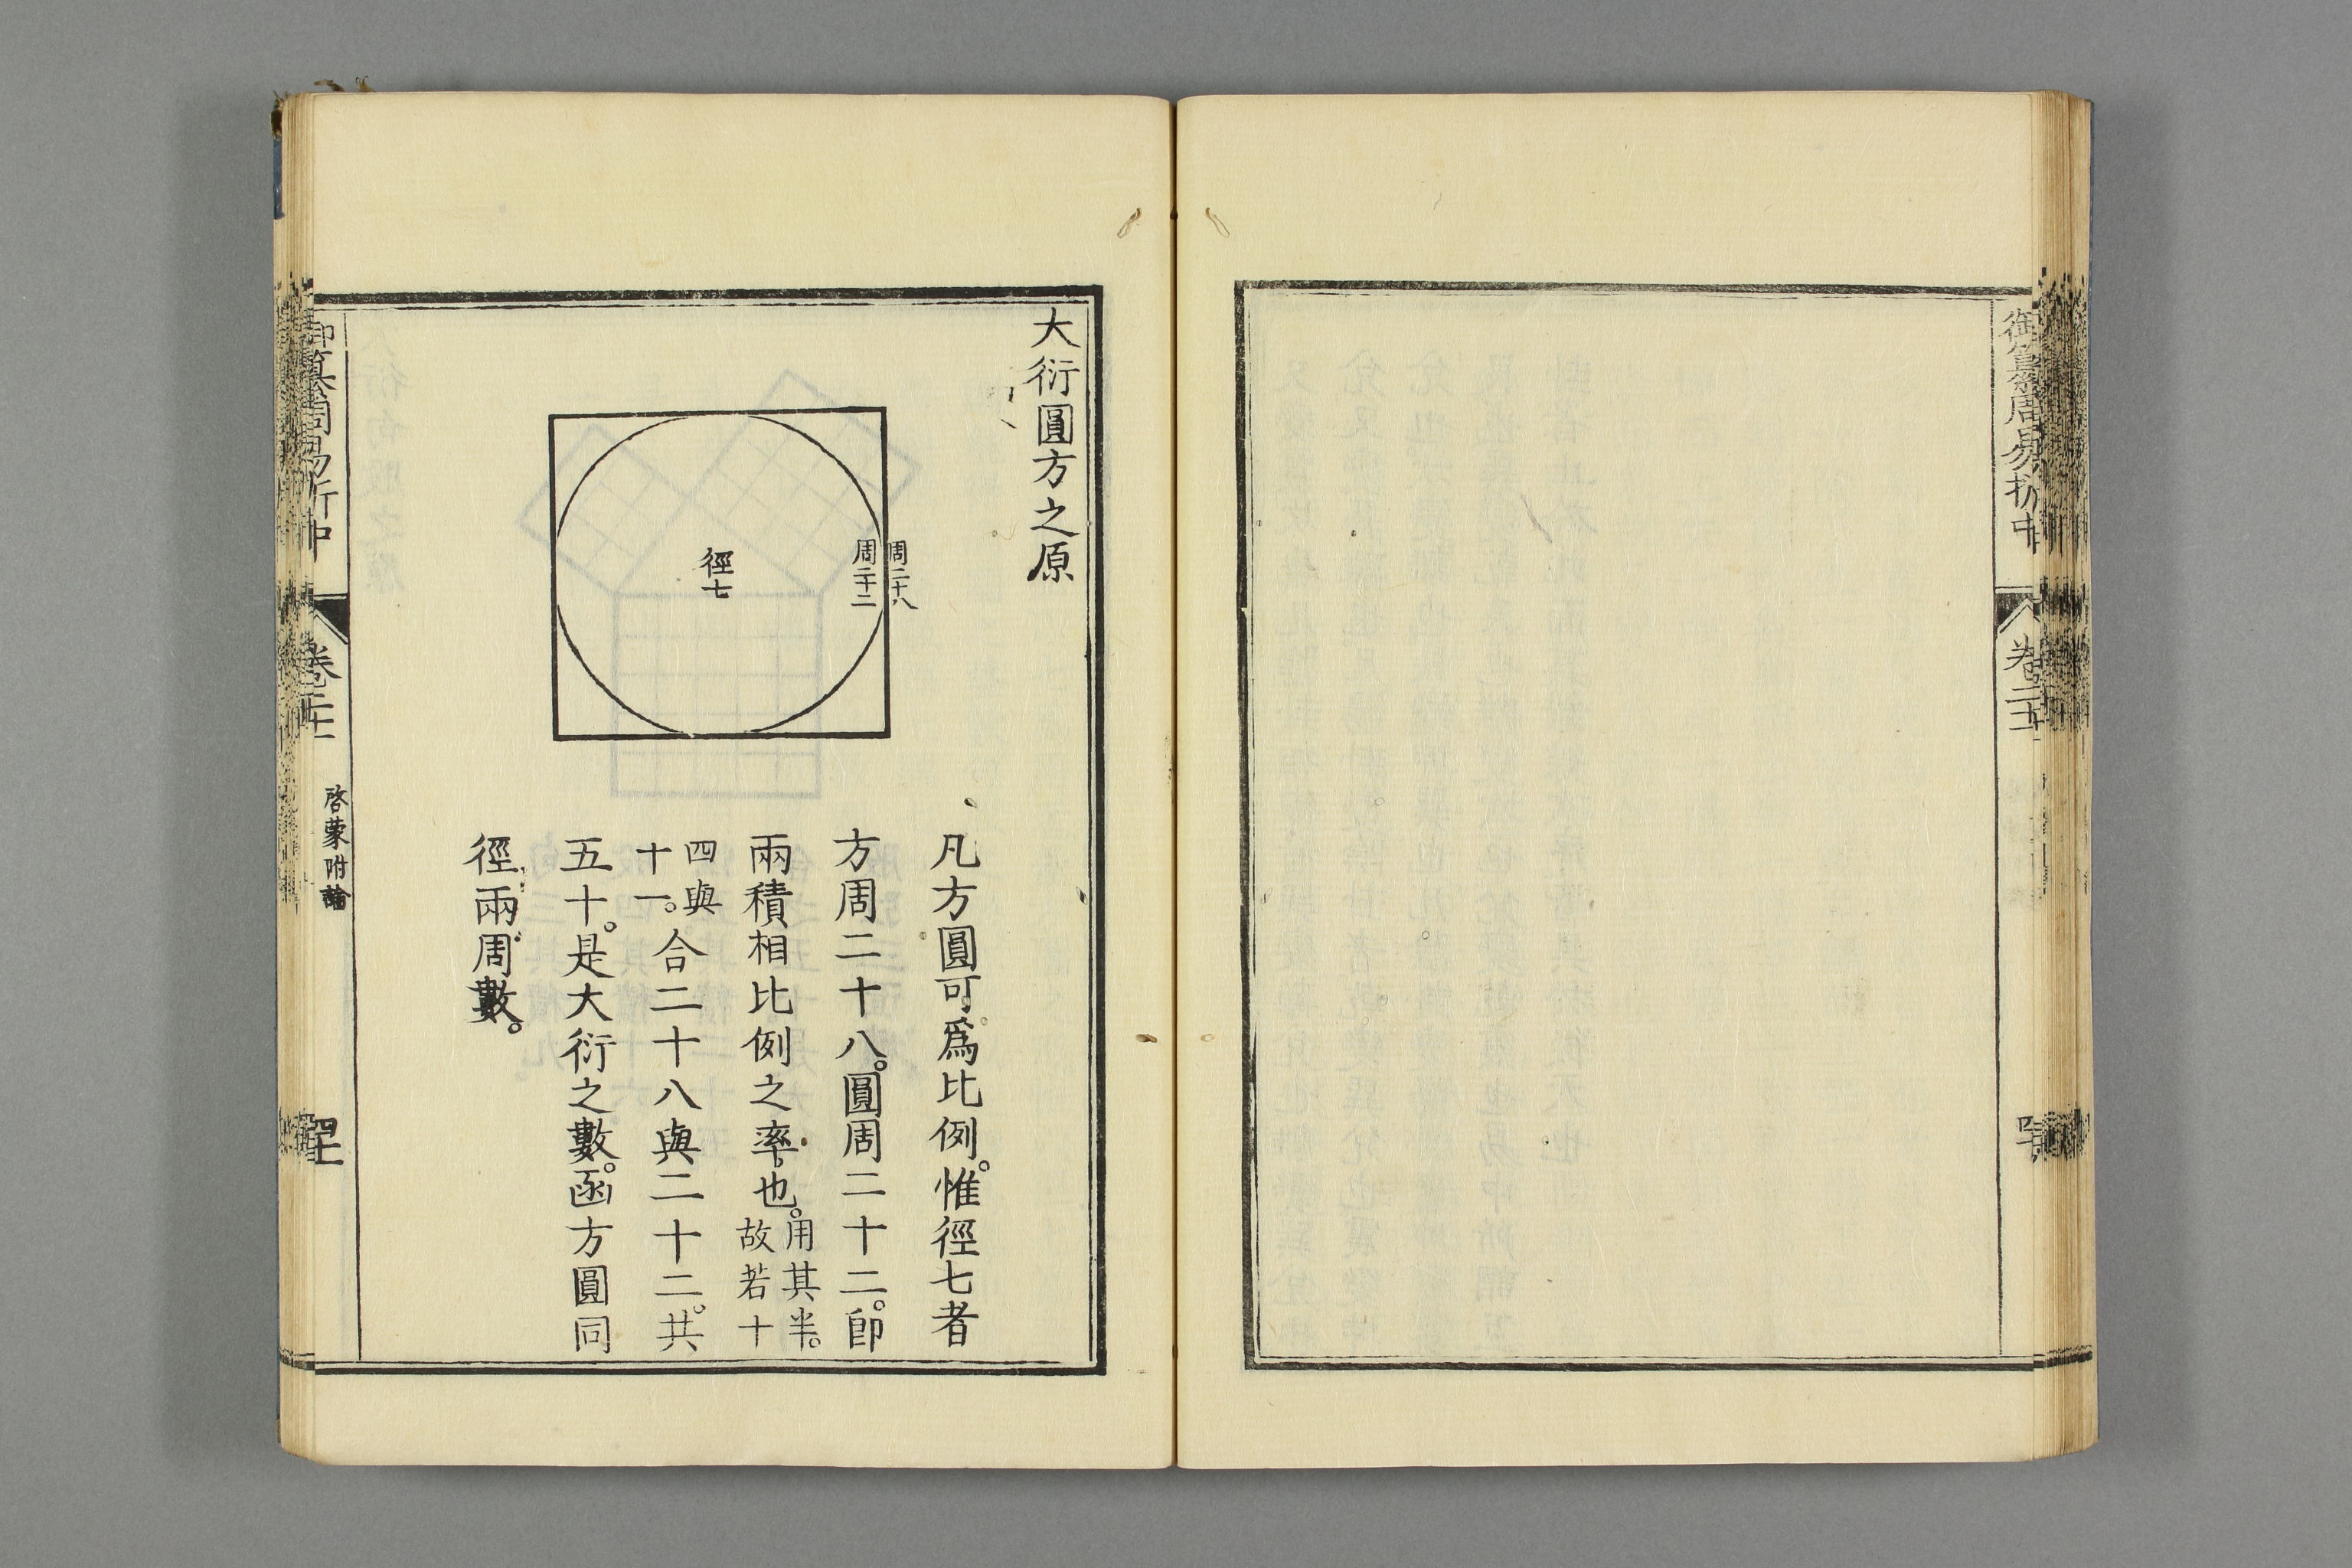 御纂周易折中
卷二十一
大衍圓方之原
周二十八
周二十二
徑七
凡方圓可爲比例。惟徑七者
方周二十八。圓周二十二。卽
兩積相比例之率也。用其半。故若十
四與十一。合二十八與二十二。共
五十。是大衍之數。函方圓同
徑兩周數。
御纂周易折中
卷二十一
啓蒙附論